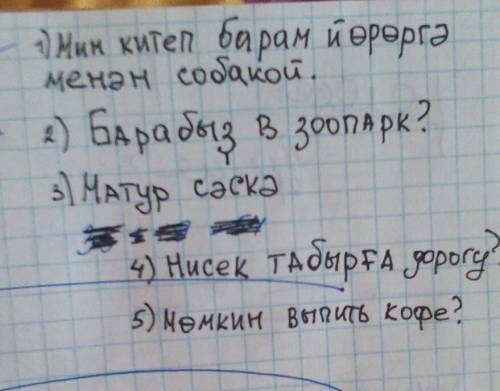 1) Мин китеп барам йөрөргә
менән собакой.
2) Барабыҙ в зоопарк?
3) Матур сәскә
4) Нисек табырға дорогу?
5) Мөмкин выпить кофе?